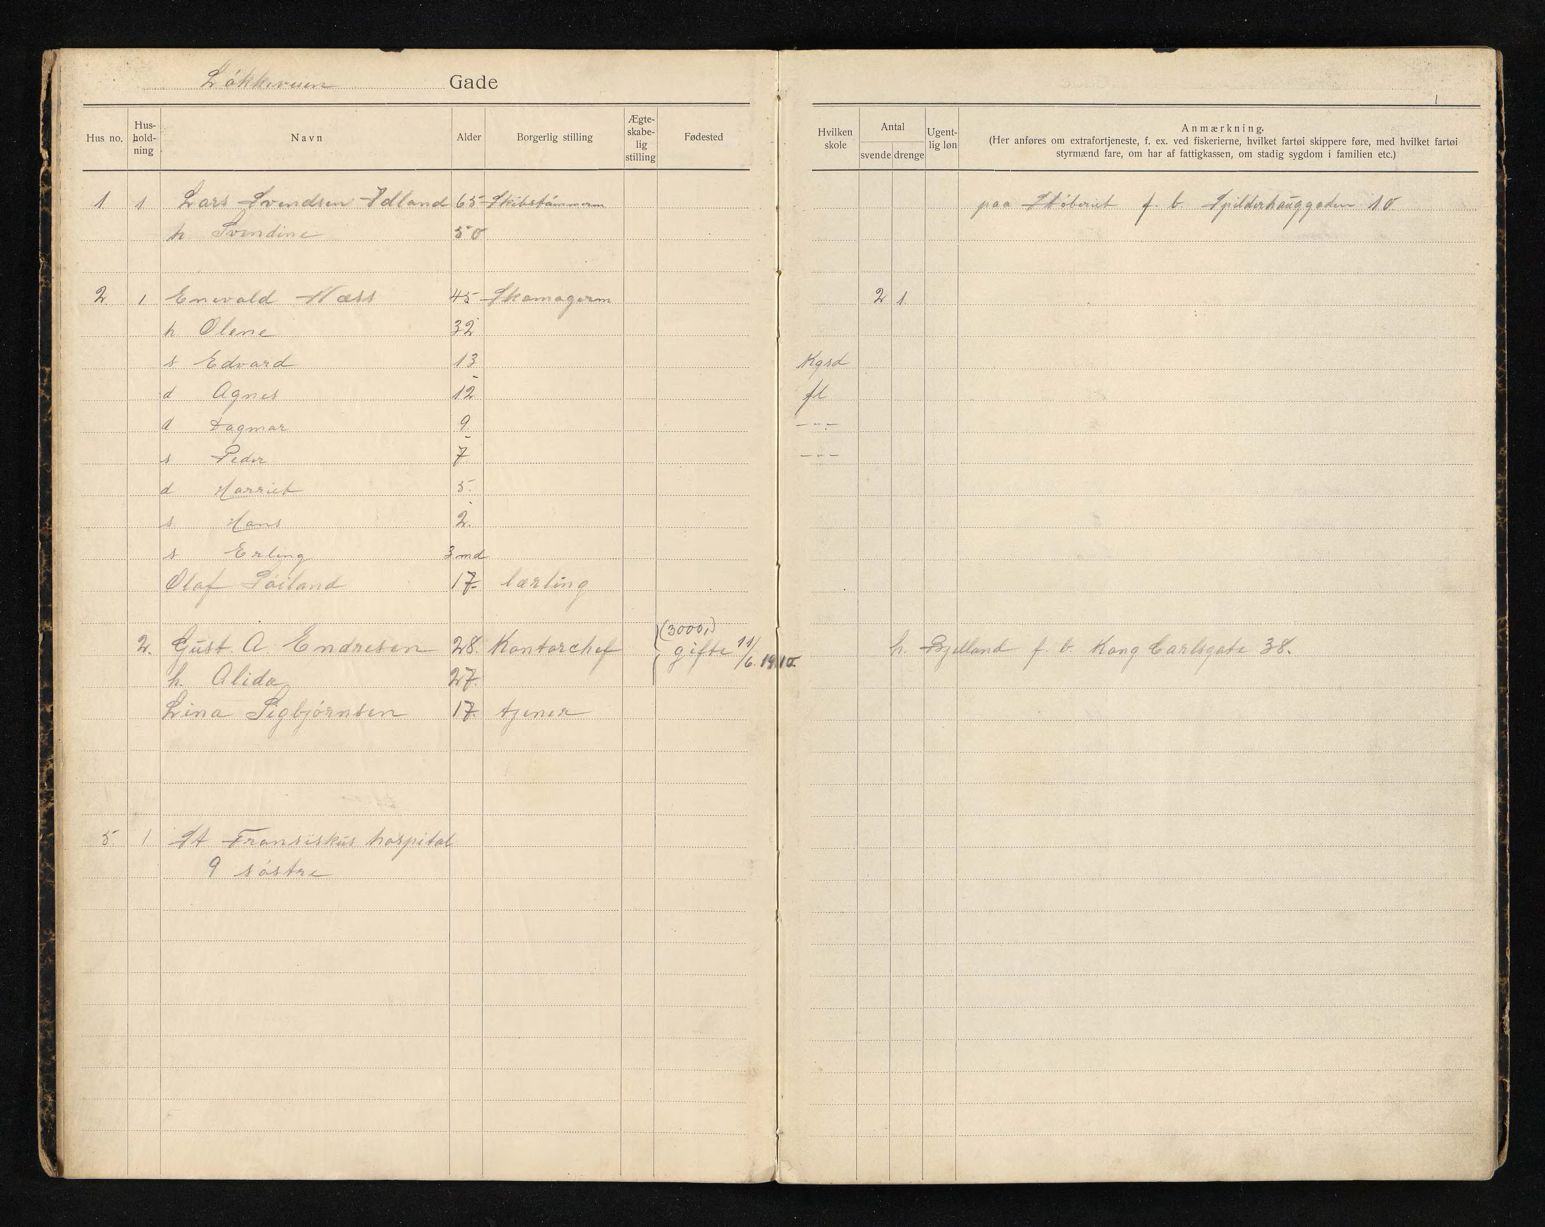 Løkkeveien Gade
Hus no. Hus-hold-ning Navn Alder Borgerlig stilling Ægte-skabe-lig stilling Fødested Hvilken skole Antal svende drenge Ugent-lig løn Anmærkning.
(Her anføres om extrafortjeneste, f. ex. ved fiskerierne, hvilket fartøi skippere føre, med hvilket fartøi
styrmænd fare, om har af fattigkassen, om stadig sygdom i familien etc.)
1 1 Lars Svendsen Ydland 65 Skibstømmerm paa Støberiet f. b. Spilderhauggaden 10
h Svendine 50
2 1 Enevald Næss 45 Skomagerm 2 1
h Olene 32
s Edvard 13 Kgsd
d Agnes 12 fl
d Dagmar 9 - - -
s Peder 7 - - -
d Harriet 5.
s Hans 2.
s Erling 3 md
Olaf Soiland 17. lærling
(3000,-)
2. Gust. A. Endresen 28. Kontorchef gifte 11/6. 1910. h. Bjelland f. b. Kong Carlsgate 38.
h. Alida 27.
Lina Sigbjørnsen 17. tjener
5. 1 St Fransiskus hospital
9 søstre